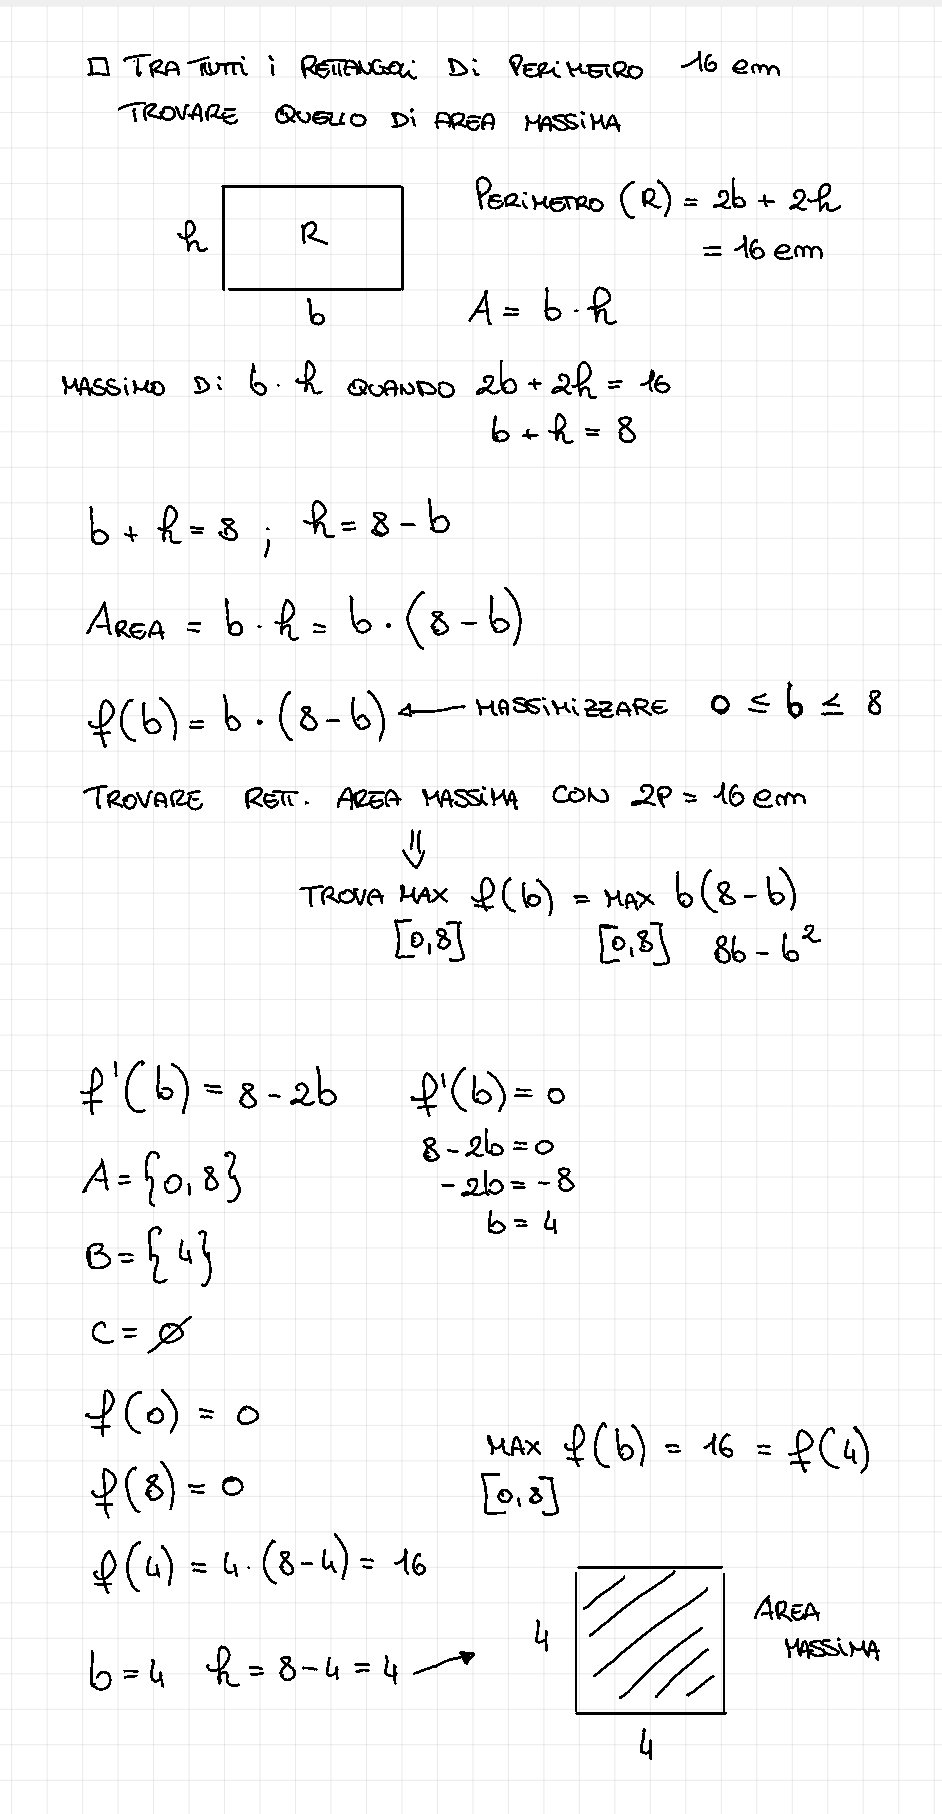 □ TRA TUTTI i RETTANGOLI Di PERiMETRO 16 cm
TROVARE QUELLO Di AREA MASSiMA
h R
b
PERiMETRO (R) = 2b + 2h
= 16 cm
A = b · h
MASSiMO Di b · h QUANDO 2b + 2h = 16
b + h = 8
b + h = 8 ; h = 8 - b
AREA = b · h = b · (8 - b)
f(b) = b · (8 - b) ← MASSiMiZZARE 0 ≤ b ≤ 8
TROVARE RETT. AREA MASSiMA CON 2P = 16 cm
⇓
TROVA MAX f(b) = MAX b(8 - b)
[0,8] [0,8] 8b - b²
f'(b) = 8 - 2b f'(b) = 0
8 - 2b = 0
A = {0,8} - 2b = - 8
b = 4
B = {4}
C = ∅
f(0) = 0
MAX f(b) = 16 = f(4)
[0,8]
f(8) = 0
f(4) = 4 · (8 - 4) = 16
b = 4 h = 8 - 4 = 4 →
4
4
AREA
MASSiMA